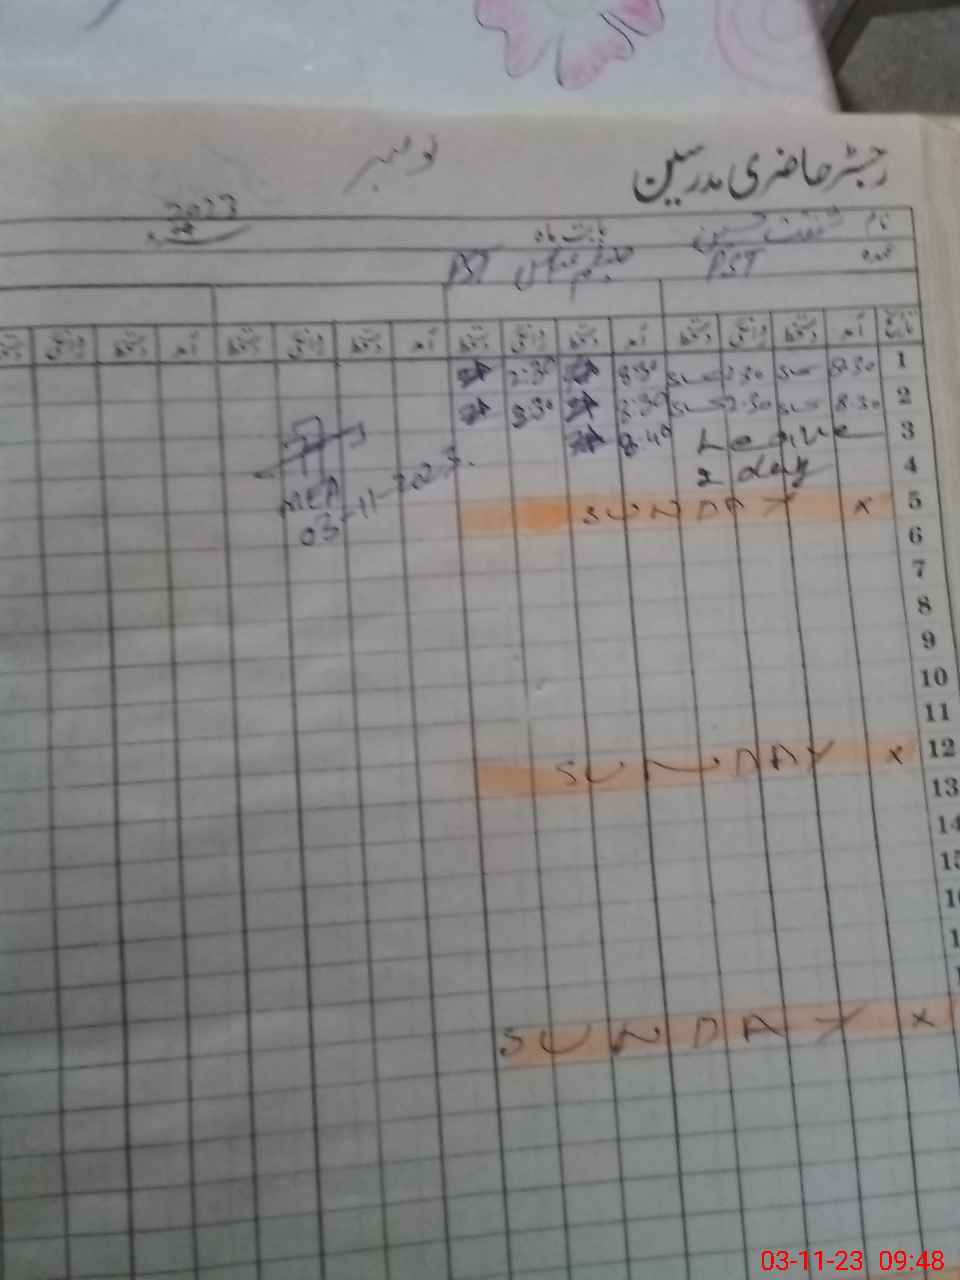 رجسٹر حاضری مدرسین نومبر
نام شفقت حسین بابت ماہ 2023
عہدہ PST PST
تاریخ آمد دستخط روانگی دستخط آمد دستخط روانگی دستخط آمد دستخط روانگی دستخط آمد دستخط روانگی دستخط
1 8:30 2:30 8:30 2:30
2 8:30 2:30 8:30 2:30
3 Leave 8:40
4 2 day
5 x SUNDAY
MEA
03-11-2023.
6
7
8
9
10
11
12 x SUNDAY
13
14
SUNDAY x
03-11-23 09:48